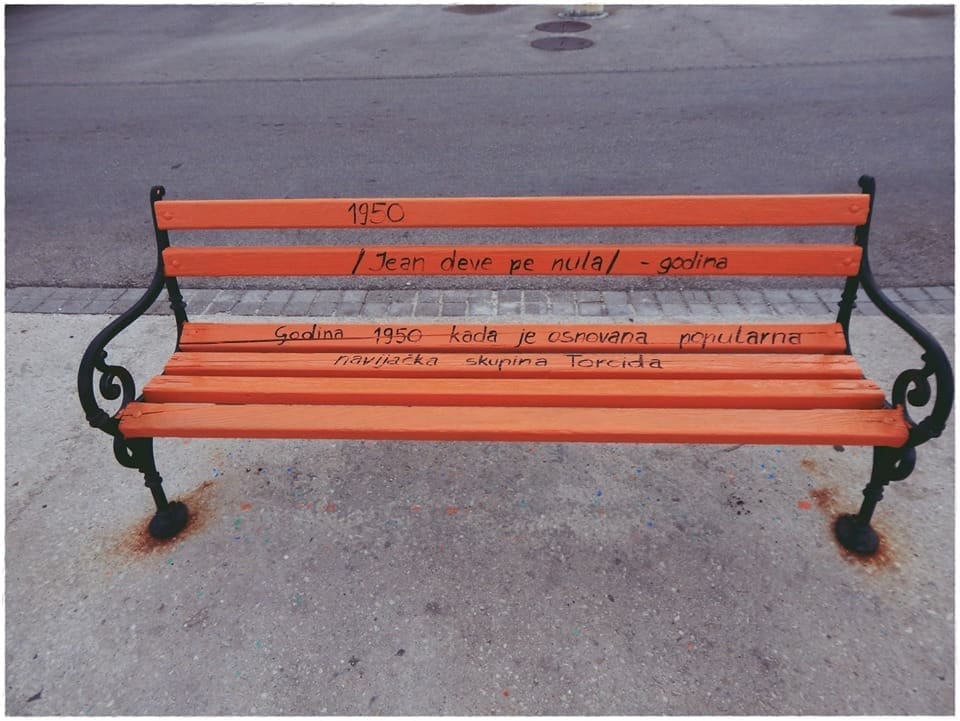 1950
/Jean deve pe nula/ - godina
Godina 1950 kada je osnovana popularna
navijačka skupina Torcida